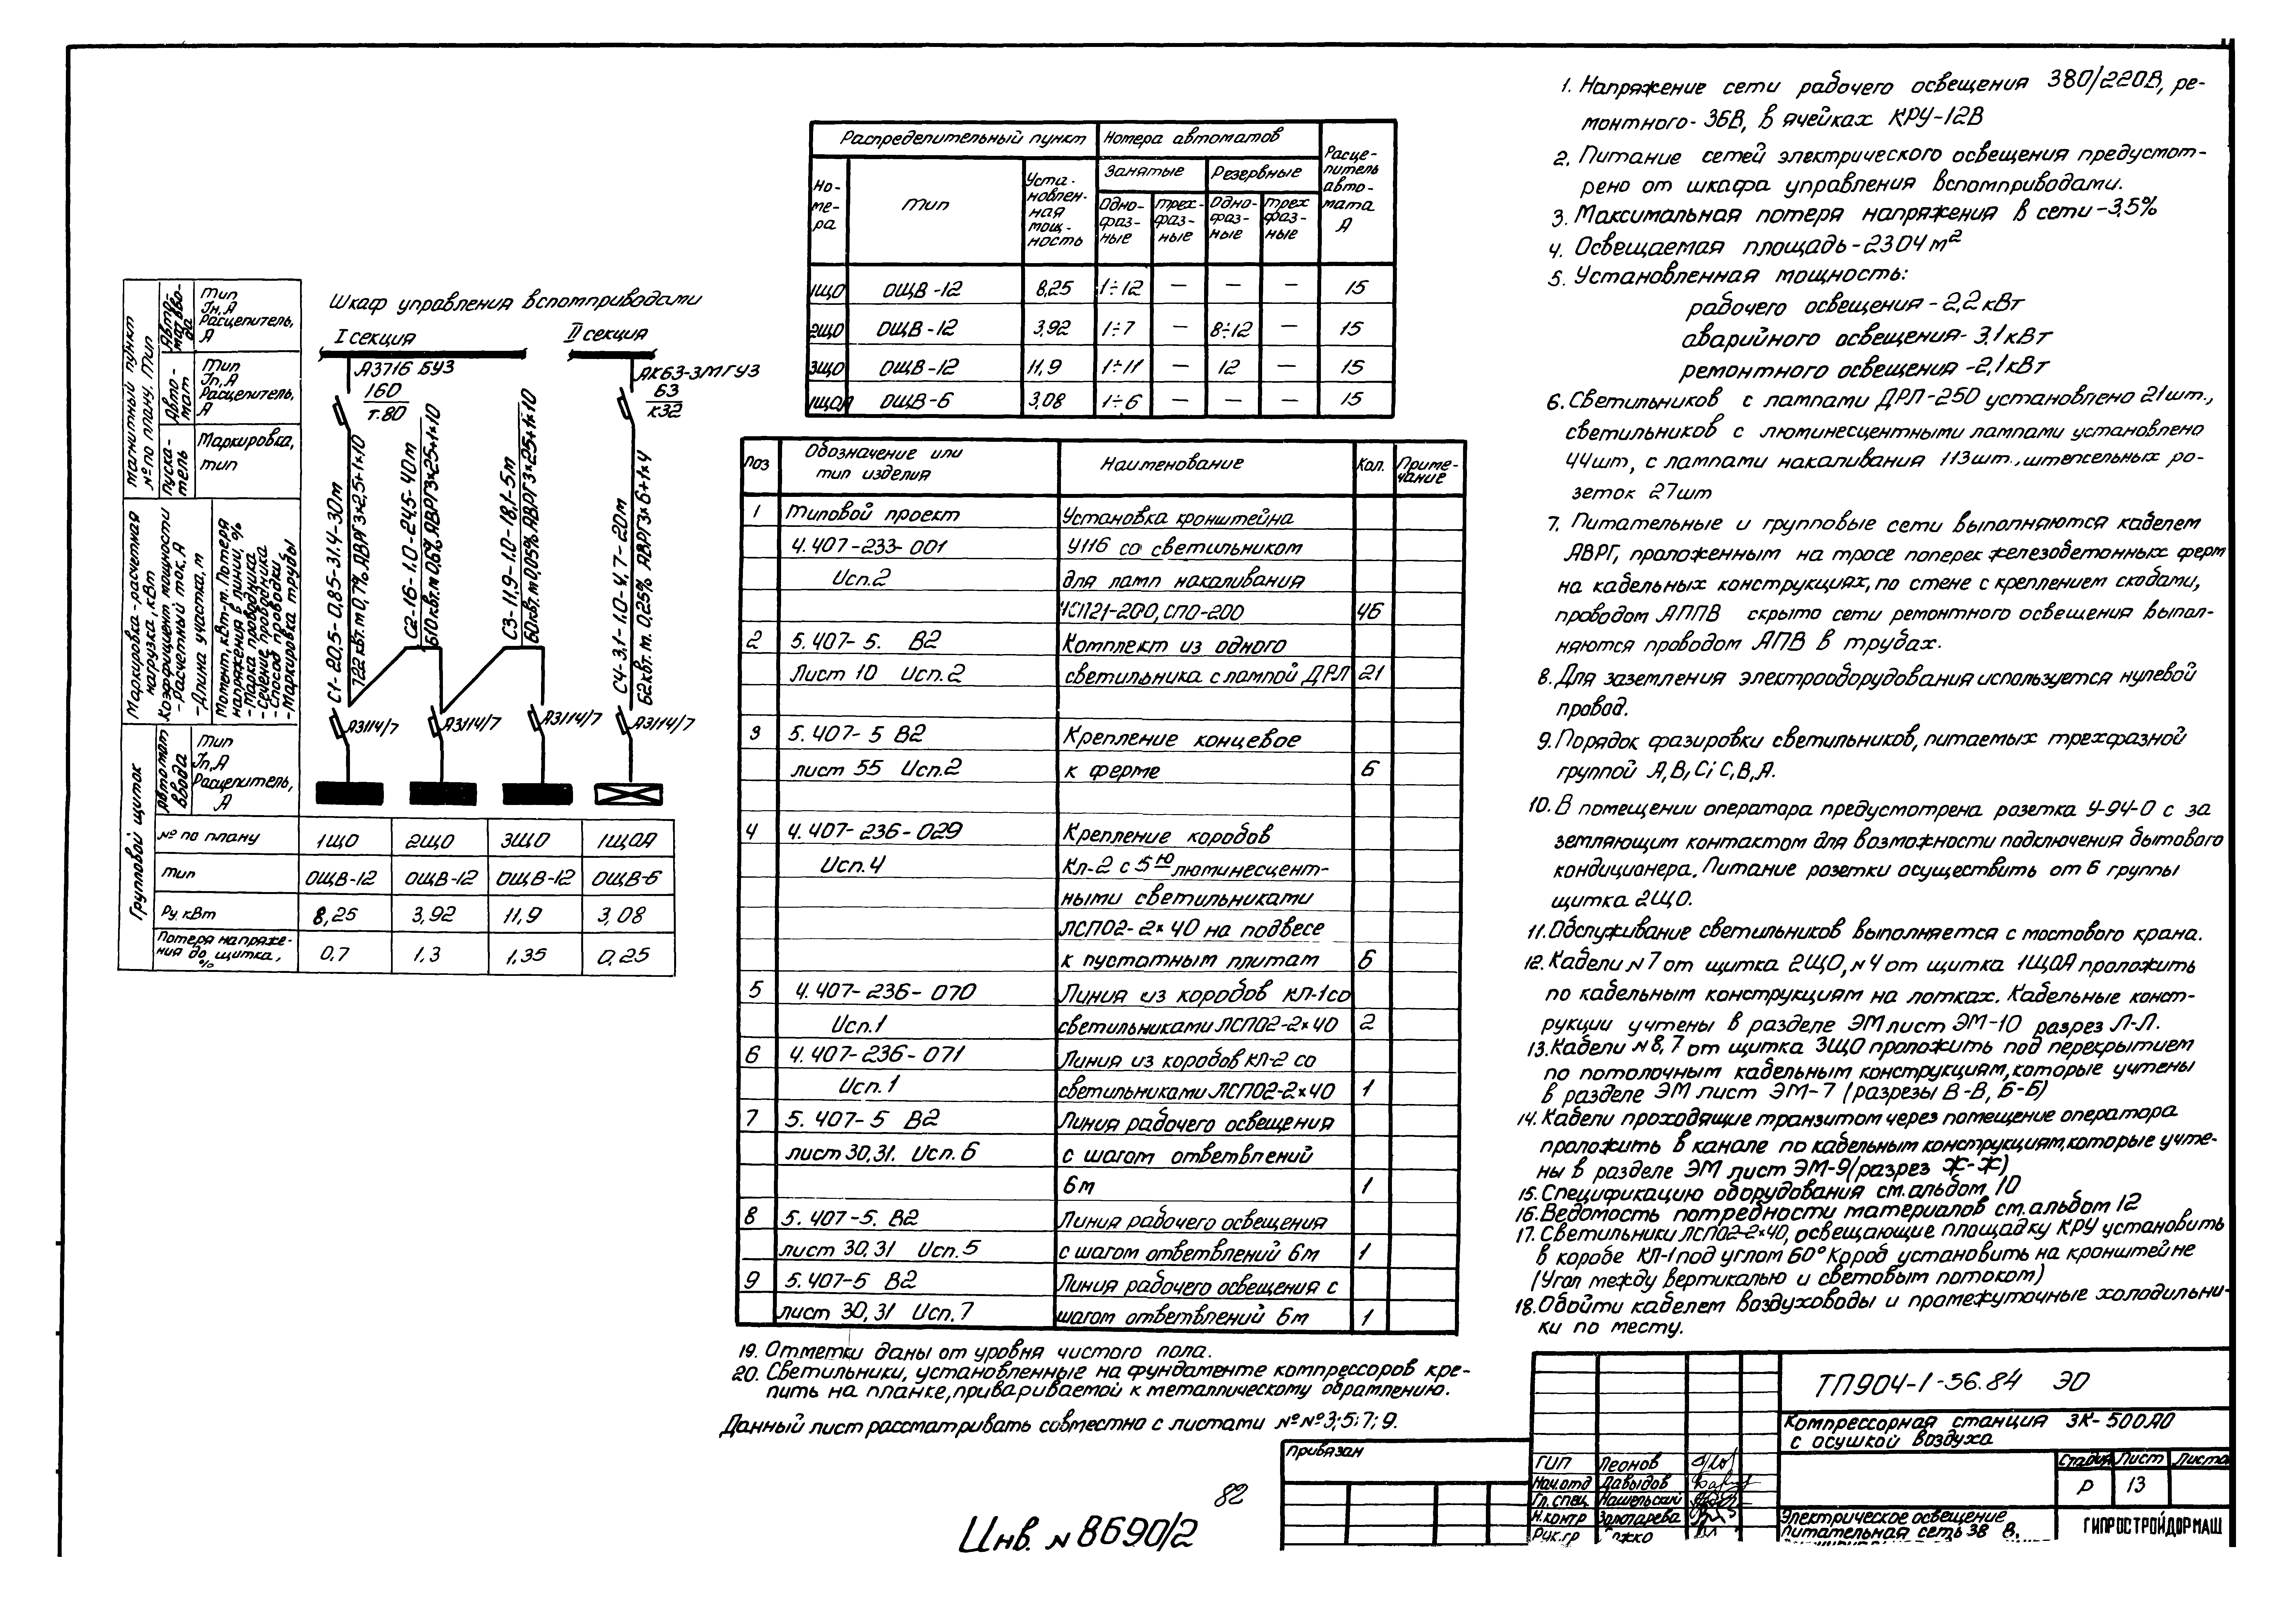 Магнитный пункт № по плану. Тип
Автомат ввода
Тип
Iн, А
Расцепитель, А
Автомат
Тип
Iп, А
Расцепитель, А
Пускатель
Маркировка, тип
Маркировка-расчетная нагрузка, кВт
Коэффициент мощности
- Расчетный ток, А
- Длина участка, м
Момент, кВт-м. Потеря напряжения в линии, %
- Марка проводника
- Сечение проводника
- Способ проводки
- Маркировка трубы
Групповой щиток
Автомат ввода
Тип
Iп, А
Расцепитель, А
Шкаф управления вспомприводами
I секция
II секция
А3716 БУЗ
160
т.80
АК63-3МГУЗ
63
к32
С1-20,5-0,85-31,4-30м
722 кВт.м 0,7% АВРГ3×25+1×10
С2-16-1.0-24,5-40м
610кВт.м 0,6% АВРГ3×25+1×10
С3-11,9-1.0-18,1-5м
60кВт.м 0,05% АВРГ3×25+1×10
С4-3,1-1.0-4,7-20м
62кВт.м. 0,25% АВРГ3×6+1×4
А3114/7 А3114/7 А3114/7 А3114/7
№ по плану 1ЩО 2ЩО 3ЩО 1ЩОА
Тип ОЩВ-12 ОЩВ-12 ОЩВ-12 ОЩВ-6
Ру, кВт 8,25 3,92 11,9 3,08
Потеря напряжения до щитка, % 0,7 1,3 1,35 0,25
Распределительный пункт Номера автоматов Расцепитель автомата А
Номера Тип Установленная мощность Занятые Резервные
Однофазные Трехфазные Однофазные Трехфазные
1ЩО ОЩВ-12 8,25 1÷12 — — — 15
2ЩО ОЩВ-12 3,92 1÷7 — 8÷12 — 15
3ЩО ОЩВ-12 11,9 1÷11 — 12 — 15
1ЩОА ОЩВ-6 3,08 1÷6 — — — 15
Поз Обозначение или тип изделия Наименование Кол. Примечание
1 Типовой проект Установка кронштейна
4.407-233-001 У116 со светильником
Исп.2 для ламп накаливания
НСП21-200, СПО-200 46
2 5.407-5. В2 Комплект из одного
Лист 10 Исп.2 светильника с лампой ДРЛ 21
3 5.407-5 В2 Крепление концевое
лист 55 Исп.2 к ферме 6
4 4.407-236-029 Крепление коробов
Исп.4 Кл-2 с 5ю люминесцент-
ными светильниками
ЛСП02-2×40 на подвесе
к пустотным плитам 6
5 4.407-236-070 Линия из коробов КЛ-1 со
Исп.1 светильниками ЛСП02-2×40 2
6 4.407-236-071 Линия из коробов КЛ-2 со
Исп.1 светильниками ЛСП02-2×40 1
7 5.407-5 В2 Линия рабочего освещения
лист 30,31. Исп.6 с шагом ответвлений
6м 1
8 5.407-5. В2 Линия рабочего освещения
лист 30,31 Исп.5 с шагом ответвлений 6м 1
9 5.407-5 В2 Линия рабочего освещения с
лист 30,31 Исп.7 шагом ответвлений 6м 1
19. Отметки даны от уровня чистого пола.
20. Светильники, установленные на фундаменте компрессоров кре-
пить на планке, привариваемой к металлическому обрамлению.
Данный лист рассматривать совместно с листами №№3;5;7;9.
1. Напряжение сети рабочего освещения 380/220В, ре-
монтного-36В, в ячейках КРУ-12В
2. Питание сетей электрического освещения предусмот-
рено от шкафа управления вспомприводами.
3. Максимальная потеря напряжения в сети-3,5%
4. Освещаемая площадь-2304м²
5. Установленная мощность:
рабочего освещения-2,2кВт
аварийного освещения-3,1кВт
ремонтного освещения-2,1кВт
6. Светильников с лампами ДРЛ-250 установлено 21шт.,
светильников с люминесцентными лампами установлено
44шт, с лампами накаливания 113шт., штепсельных ро-
зеток 27шт
7. Питательные и групповые сети выполняются кабелем
АВРГ, проложенным на тросе поперек железобетонных ферм
на кабельных конструкциях, по стене с креплением скобами,
проводом АППВ скрыто сети ремонтного освещения выпол-
няются проводом АПВ в трубах.
8. Для заземления электрооборудования используется нулевой
провод.
9. Порядок фазировки светильников, питаемых трехфазной
группой А,В,С; С,В,А.
10. В помещении оператора предусмотрена розетка У-94-0 с за
земляющим контактом для возможности подключения бытового
кондиционера. Питание розетки осуществить от 6 группы
щитка 2ЩО.
11. Обслуживание светильников выполняется с мостового крана.
12. Кабели №7 от щитка 2ЩО, №4 от щитка 1ЩОА проложить
по кабельным конструкциям на лотках. Кабельные конст-
рукции учтены в разделе ЭМ лист ЭМ-10 разрез Л-Л.
13. Кабели №8,7 от щитка 3ЩО проложить под перекрытием
по потолочным кабельным конструкциям, которые учтены
в разделе ЭМ лист ЭМ-7 (разрезы В-В, Б-Б)
14. Кабели проходящие транзитом через помещение оператора
проложить в канале по кабельным конструкциям, которые учте-
ны в разделе ЭМ лист ЭМ-9(разрез Ж-Ж)
15. Спецификацию оборудования см. альбом 10
16. Ведомость потребности материалов см. альбом 12
17. Светильники ЛСП02-2×40, освещающие площадку КРУ установить
в коробе КЛ-1 под углом 60° Короб установить на кронштейне
(Угол между вертикалью и световым потоком)
18. Обойти кабелем воздуховоды и промежуточные холодильни-
ки по месту.
ТП904-1-56.84 ЭО
Компрессорная станция 3К-500АО
с осушкой воздуха
Стадия Лист Листов
Р 13
ГИП Леонов
Нач.отд Давыдов
Гл.спец Нашельский
Н.контр Золотарева
Рук.гр
Электрическое освещение
питательная сеть
ГИПРОСТРОЙДОРМАШ
Привязан
82
Инв. № 8690/2